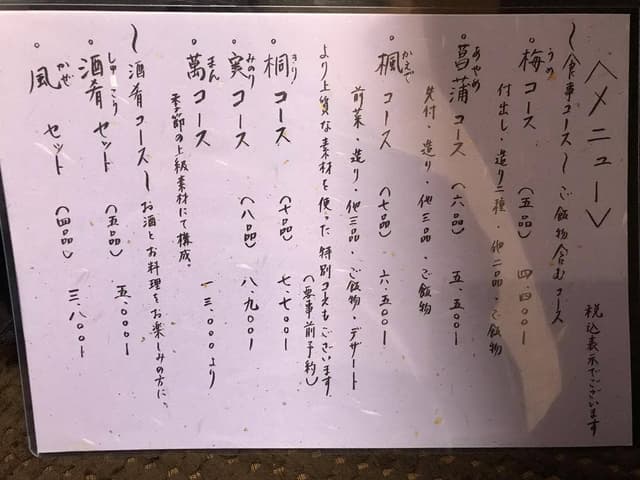 〈メニュー〉
税込表示でございます
〜食事コース〜ご飯物含むコース
・梅コース（五品）四、四〇〇ー
うめ
付出し・造り二種・他二品・ご飯物
・菖蒲コース（六品）五、五〇〇ー
あやめ
先付・造り・他三品・ご飯物
・楓コース（七品）六、五〇〇ー
かえで
前菜・造り・他三品・ご飯物・デザート
より上質な素材を使った特別コースもございます
（要事前予約）
・桐コース（十品）七、七〇〇ー
きり
・実コース（八品）八、九〇〇ー
みのり
・萬コース 一三、〇〇〇より
まん
季節の上級素材にて構成。
〜酒肴コース〜お酒とお料理をお楽しみの方に、
・酒肴セット（五品）五、〇〇〇ー
しゅこう
・風セット（四品）三、八〇〇ー
かぜ